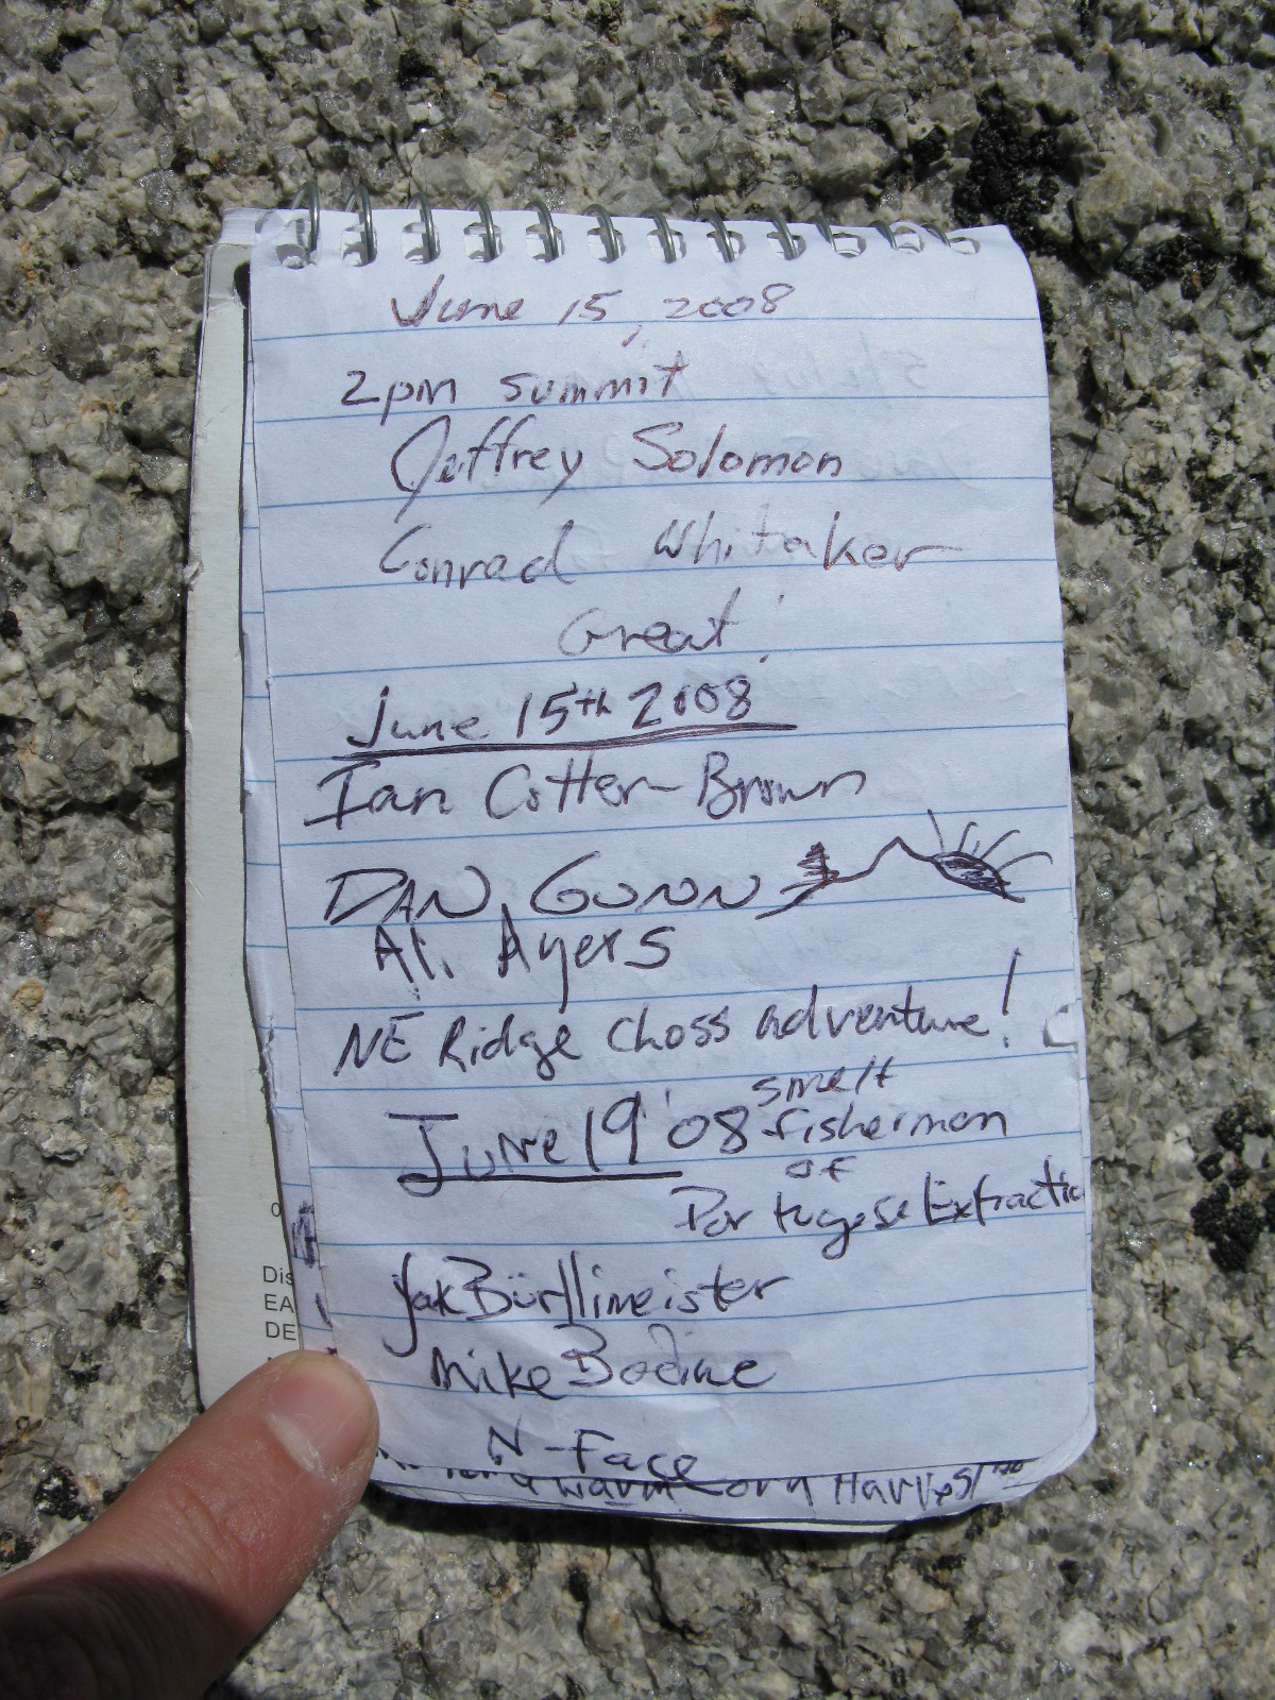 June 15, 2008
2pm summit
Jeffrey Solomon
Conrad Whitaker
Great!
June 15th 2008
Ian Cotter-Brown
DAN GUNN
Al. Ayers
NE Ridge Choss adventure!
June 19 '08
smelt
fisherman
of
Portugese Extractio
Jak Bürllimeister
Mike Bodine
N-Face
warm corn Harvest
Dis
EA
DE